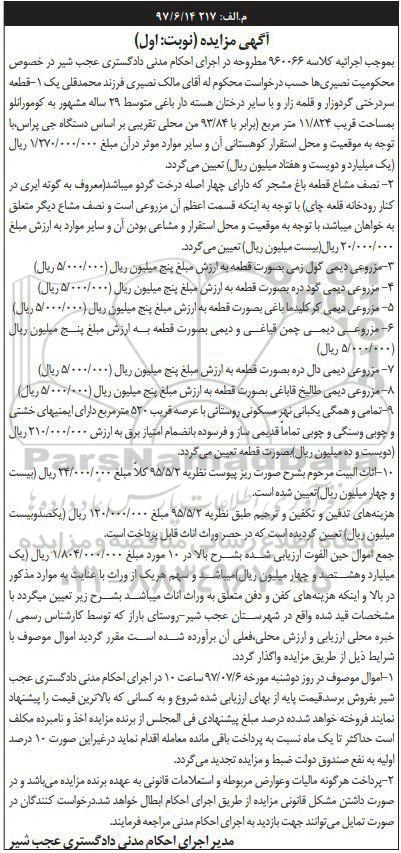 م.الف: ۲۱۷ ۹۷/۶/۱۴
آگهی مزایده (نوبت: اول)
بموجب اجرائیه کلاسه ۹۶۰۰۶۶ مطروحه در اجرای احکام مدنی دادگستری عجب شیر در خصوص
محکومیت نصیری‌ها حسب درخواست محکوم له آقای مالک نصیری فرزند محمدقلی یک ۱-قطعه
سردرختی گردوزار و قلمه زار و با سایر درختان هسته دار باغی متوسط ۲۹ ساله مشهور به کومورانلو
بمساحت قریب ۱۱/۸۲۴ متر مربع (برابر با ۹۳/۸۴ من محلی تقریبی بر اساس دستگاه جی پراس،با
توجه به موقعیت و محل استقرار کوهستانی آن و سایر موارد موثر درآن مبلغ ۱/۲۷۰/۰۰۰/۰۰۰ ریال
(یک میلیارد و دویست و هفتاد میلیون ریال) تعیین می‌گردد.
۲- نصف مشاع قطعه باغ مشجر که دارای چهار اصله درخت گردو میباشد(معروف به گوته ایری در
کنار رودخانه قلعه چای) با توجه به اینکه قسمت اعظم آن مزروعی است و نصف مشاع دیگر متعلق
به خواهان میباشد، با توجه به موقعیت و محل استقرار و مشاعی بودن آن و سایر موارد به ارزش مبلغ
۲۰/۰۰۰/۰۰۰ ریال(بیست میلیون ریال) تعیین می‌گردد.
۳-مزروعی دیمی گول زمی بصورت قطعه به ارزش مبلغ پنج میلیون ریال (۵/۰۰۰/۰۰۰ ریال)
۴-مزروعی دیمی گود دره بصورت قطعه به ارزش مبلغ پنج میلیون ریال (۵/۰۰۰/۰۰۰ ریال)
۵-مزروعی دیمی کر کلیدما باغی بصورت قطعه به ارزش مبلغ پنج میلیون ریال (۵/۰۰۰/۰۰۰ ریال)
۶-مزروعی دیمی چمن قباغی و دیمی بصورت قطعه به ارزش مبلغ پنج میلیون ریال
(۵/۰۰۰/۰۰۰ ریال)
۷-مزروعی دیمی دال دره بصورت قطعه به ارزش مبلغ پنج میلیون ریال (۵/۰۰۰/۰۰۰ ریال)
۸-مزروعی دیمی طالیخ قاباغی بصورت قطعه به ارزش مبلغ پنج میلیون ریال (۵/۰۰۰/۰۰۰ ریال)
۹-تمامی و همگی یکبانی نهر مسکونی روستائی با عرصه قریب ۵۲۰ مترمربع دارای ایمنیهای خشتی
و چوبی وسنگی و چوبی تماماً قدیمی بناز و فرسوده بانضمام امتیاز برق به ارزش ۲۱۰/۰۰۰/۰۰۰ ریال
(دویست و ده میلیون ریال)بصورت قطعه تعیین می‌گردد.
۱۰-اثاث البیت مرحوم بشرح صورت ریز پیوست نظریه ۹۵/۵/۲ کلاً مبلغ ۲۴/۰۰۰/۰۰۰ ریال (بیست
و چهار میلیون ریال)تعیین شده است.
هزینه‌های تدفین و تکفین و ترحیم طبق نظریه ۹۵/۵/۲ مبلغ ۱۲۰/۰۰۰/۰۰۰ ریال (یکصدوبیست
میلیون ریال) تعیین گردیده است که در حصر وراث اناث قابل پرداخت است.
جمع اموال حین الفوت ارزیابی شده بشرح بالا در ۱۰ مورد مبلغ ۱/۸۰۴/۰۰۰/۰۰۰ ریال (یک
میلیارد وهشتصد و چهار میلیون ریال)میباشد و سهم هریک از وراث با عنایت به موارد مذکور
در بالا و اینکه هزینه‌های کفن و دفن متعلق به وراث اناث میباشد بشرح زیر تعیین میگردد با
مشخصات قید شده واقع در شهرستان عجب شیر-روستای باراز که توسط کارشناس رسمی /
خبره محلی ارزیابی و ارزش محلی،فعلی آن برآورده شده است مقرر گردید اموال موصوف با
شرایط ذیل از طریق مزایده واگذار گردد.
۱-اموال موصوف در روز دوشنبه مورخه ۹۷/۰۷/۶ ساعت ۱۰ در اجرای احکام مدنی دادگستری عجب
شیر بفروش برسد.قیمت پایه از بهای ارزیابی شده شروع و به کسانی که بالاترین قیمت را پیشنهاد
نمایند فروخته خواهد شد.ده درصد مبلغ پیشنهادی فی المجلس از برنده مزایده اخذ و نامبرده مکلف
است حداکثر تا یک ماه نسبت به پرداخت باقی مانده معامله اقدام نماید درغیراین صورت ۱۰ درصد
اولیه به نفع صندوق دولت ضبط و مزایده تجدید می‌گردد.
۲-پرداخت هرگونه مالیات وعوارض مربوطه و استعلامات قانونی به عهده برنده مزایده می‌باشد و در
صورت داشتن مشکل قانونی مزایده از طریق اجرای احکام ابطال خواهد شد.درخواست کنندگان در
صورت تمایل می‌توانند جهت بازدید به اجرای احکام مدنی مراجعه فرمایند.
مدیر اجرای احکام مدنی دادگستری عجب شیر